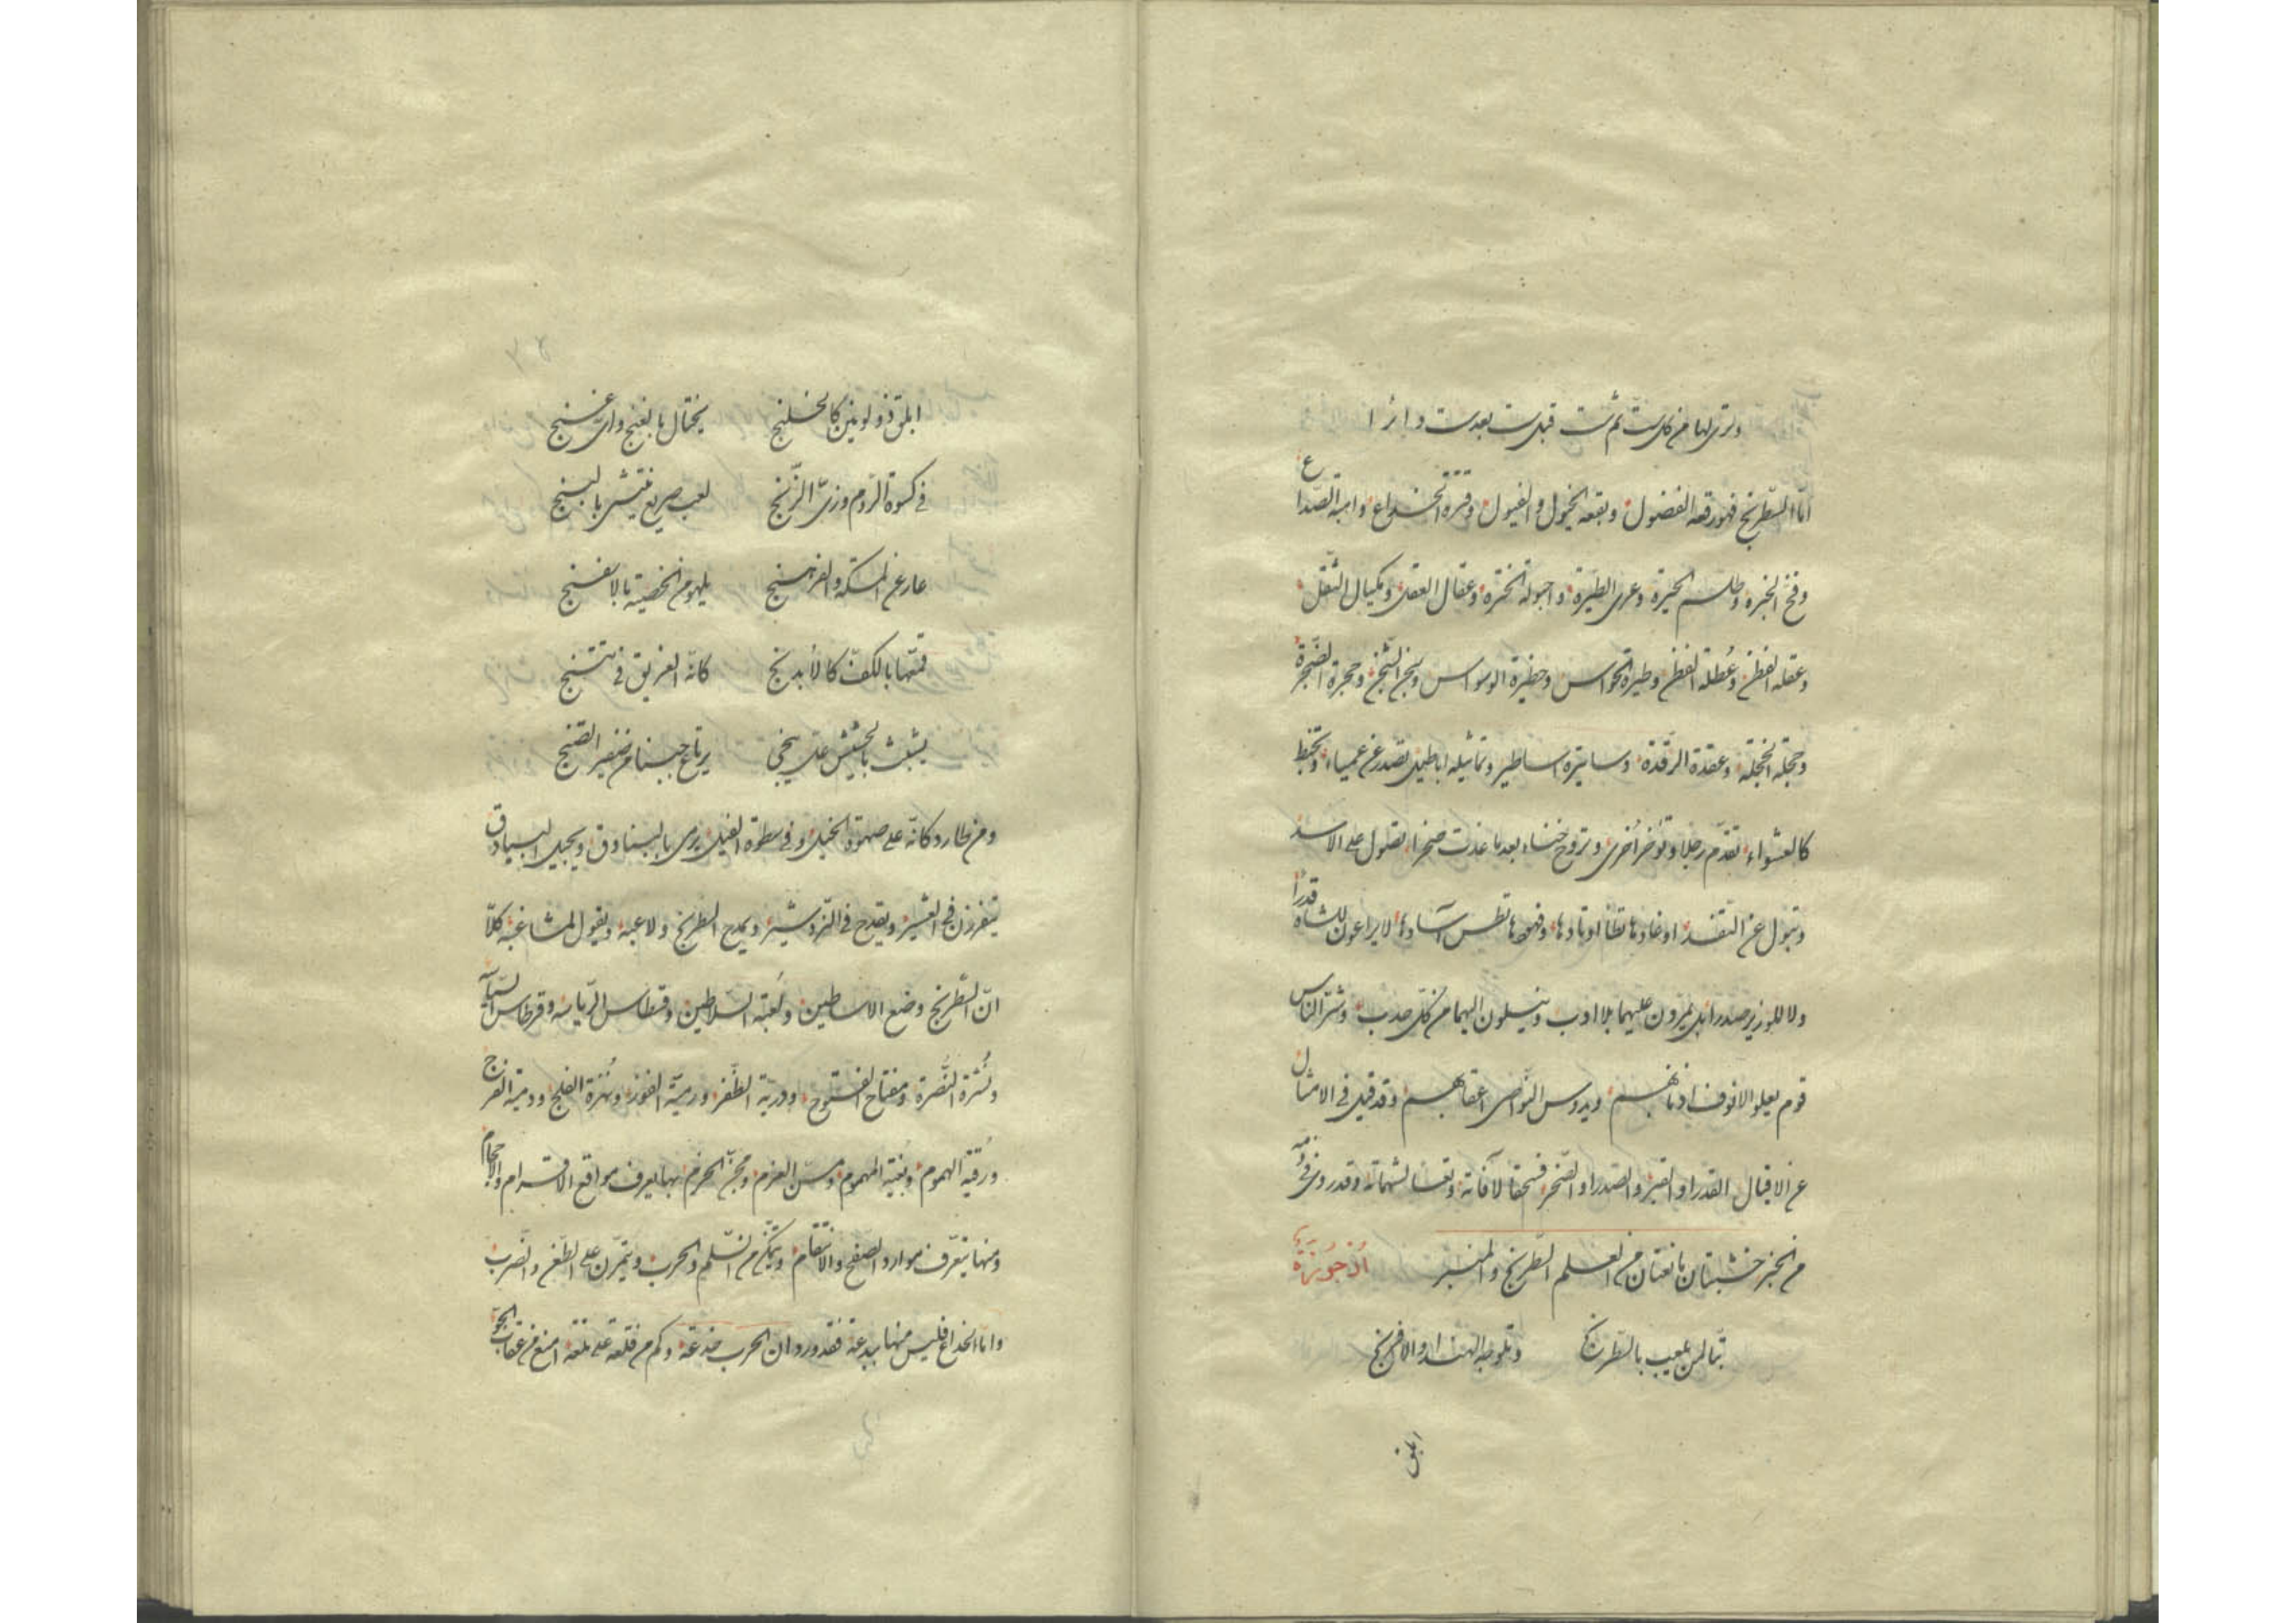 وترى لها من كل ست ثم شت قبل ست بعد ست واثرا
امّا الشّطرنج فهو رقعة الفضول وبقعة الخيول والفيول وقترة الخداع وابنة الصّداع
وفخّ الخبرة وطلسم الحيرة وعرى الطيرة واحبولة الخترة وعقال العقل ومكيال الثقل
وعقلة الفطن وعُطلة الفطن وطيرة الحواس وحظيرة الوسواس وحجرة الضّجرة
وحجلة الخجلة وعقدة الرقدة وساتيره اساطير وتماثيله اباطيل تصدر عن عمياء وتخبط
كالعشواء تقدّم رجلا وتؤخر اُخرى وتروح خنساء بعد ما غدت صخرا تصول على الاسد
وتبول عن النّقد اوغادها اوتادها لا يراعون للشاه قدرا
ولا للوزير صدرا بل يمرّون عليهما بلا ادب وينسلون اليهما من كلّ حدب وشرّ النّاس
قوم يعلو الانوف اذنابهم ويدوس النّواصى اعقابهم وقد قيل فى الامثال
عن الاقيال القدر او القبر والصدر او فسحقا لآفاته وتعسا لشماته وقد روى فى ذمّه
من الخبر خشبتان مانعتان من العلم الشطرنج والمنبر اُرْجُوزَة
تبّا لمن يلعب بالشّطرنج وتلوه الهند او الافرنج
ابلق
ابلق ذو لونين كالخلنج يختال بالغنج واى غنج
فى كسوة الرّوم وزىّ الزّنج لعب صريع منتش بالبنج
عار عن المسكة يلهو من الخصية بالاسفنج
بالكفّ كالأبدنج كانّه الغريق فى
يرتاع جبنا من صفير الصّنج
ومن طارد كانّه على صهوة الخيل وفى سطوة الفيل يرمى بالبنادق ويجيل البيادق
يتفرزن فى ويقدح فى النّردشير ويمدح الشطرنج ولاعبه ويقول لمشاغبه كلّا
انّ الشّطرنج وضع الاساطين ولُعبة السّلاطين وقسطاس الرّياسة وقرطاس السّياسة
ونُشرة النُّصرة ومفتاح الفتوح ودربة الظّفر ورميّة الفوز ونُهزة الفلج ودمية الفرج
ورُقية الهموم وبُغية المهموم ومسنّ العزم ومجنّ الحزم بها يعرف مواقع الاقدام والاحجام
ومنها يتعرّف موارد الصفح والانتقام ويتمكّن من السّلم والحرب ويتمرّن على الطّعن والضّرب
وامّا الخداع فليس منها ببدعة فقد ورد ان الحرب خدعة وكم من قلعة على تلعة امنع من عقاب الجوّ